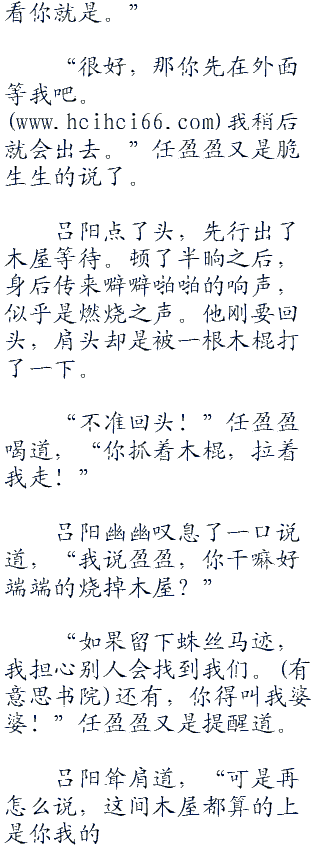 看你就是。”
“很好，那你先在外面
等我吧。
(www.hcihci66.com)我稍后
就会出去。”任盈盈又是脆
生生的说了。
吕阳点了头，先行出了
木屋等待。顿了半晌之后，
身后传来噼噼啪啪的响声，
似乎是燃烧之声。他刚要回
头，肩头却是被一根木棍打
了一下。
“不准回头！”任盈盈
喝道，“你抓着木棍，拉着
我走！”
吕阳幽幽叹息了一口说
道，“我说盈盈，你干嘛好
端端的烧掉木屋？”
“如果留下蛛丝马迹，
我担心别人会找到我们。(有
意思书院)还有，你得叫我婆
婆！”任盈盈又是提醒道。
吕阳耸肩道，“可是再
怎么说，这间木屋都算的上
是你我的